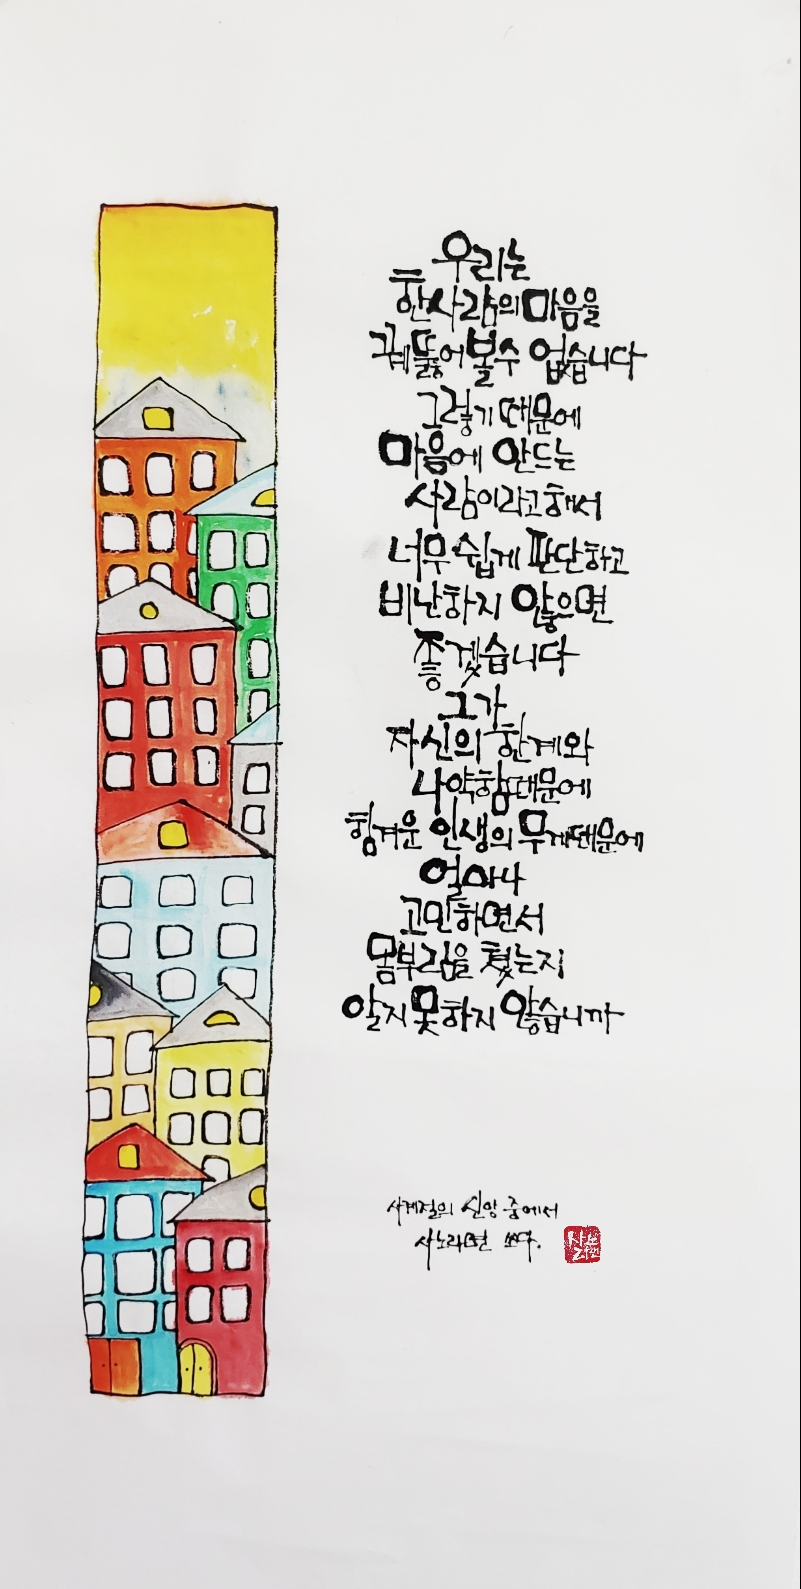 우리는
한사람의 마음을
꿰뚫어 볼수 없습니다
그렇기 때문에
마음에 안드는
사람이라고해서
너무 쉽게 판단하고
비난하지 않으면
좋겠습니다
그가
자신의 한계와
나약함때문에
힘겨운 인생의 무게때문에
얼마나
고민하면서
몸부림을 쳤는지
알지 못하지 않습니까
사계절의 신앙 중에서
사노라면 쓰다.
사노
라면